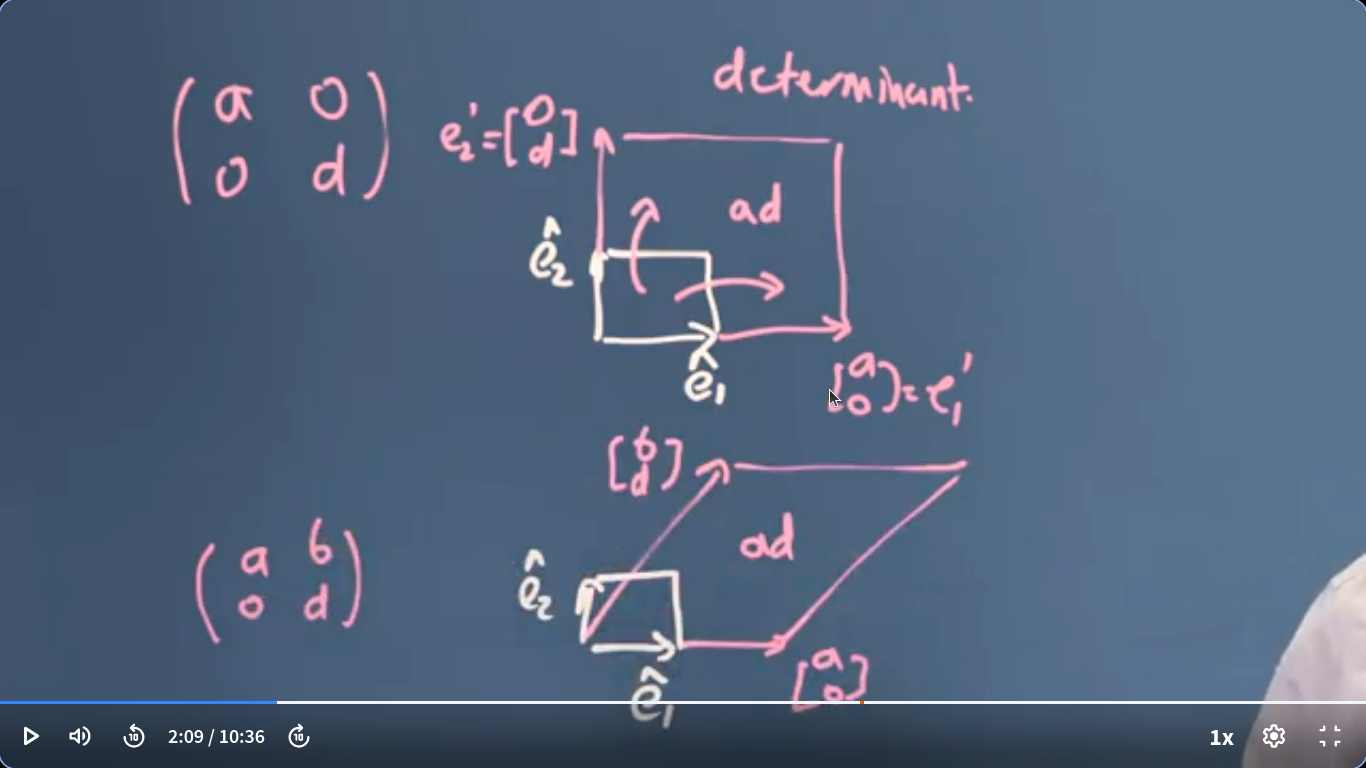 determinant.
(a 0
0 d)
e₂' = [0
d]
ad
ê₂
ê₁
[a
0] = e₁'
[b
d]
ad
(a b
0 d)
ê₂
ê₁
[a
0]
10
2:09 / 10:36
10
1x